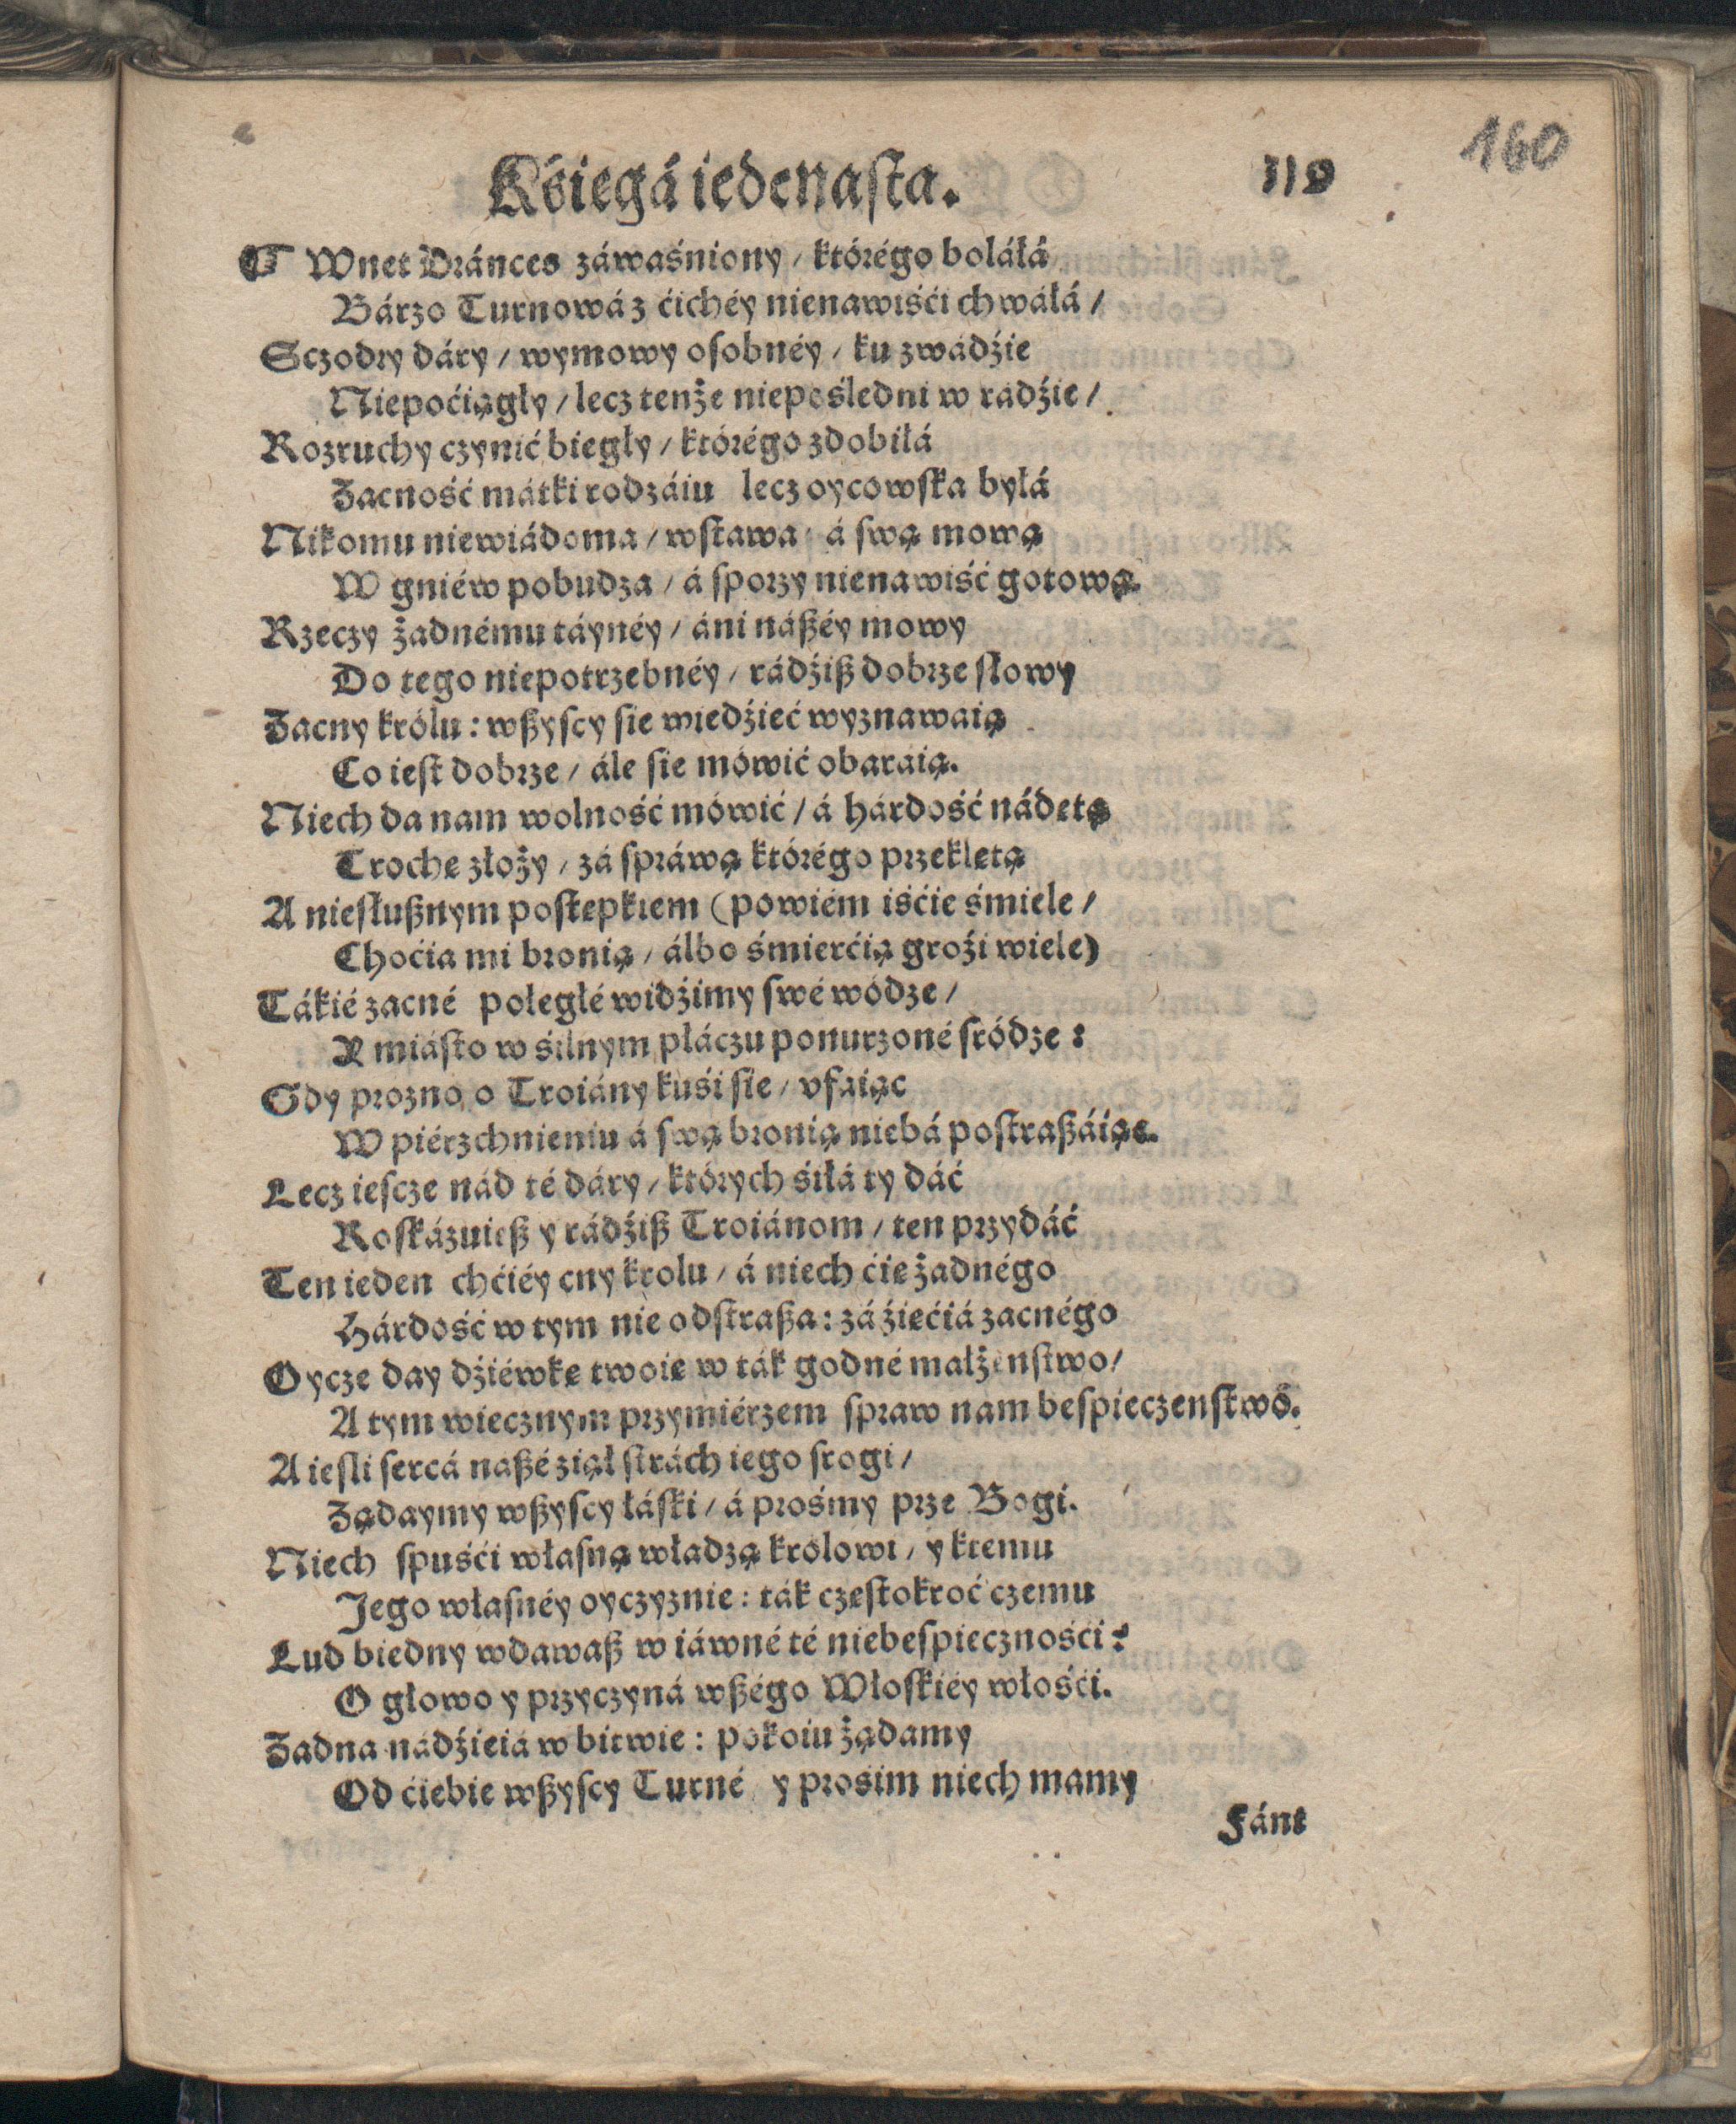 160
Kśięgá iedenasta. 119
Wnet Dránces záwaśniony / którégo boláłá
Bárzo Turnowá z ćichéy nienawiśći chwałá /
Sczodry dáry / wymowy osobnéy / ku zwadźie
Niepoćiągły / lecz tenże niepośledni w radźie /
Rozruchy czynić biegły / którégo zdobiłá
Zacność mátki rodzáiu lecz oycowska byłá
Nikomu niewiádoma / wstawa á swą mową
W gniéw pobudza / á sporzy nienawiść gotową.
Rzeczy żadnému táynéy / áni nászéy mowy
Do tego niepotrzebnéy / rádźisz dobrze słowy
Zacny królu : wszyscy sie wiedźieć wyznawaią
Co iest dobrze / ále sie mówić obaraią.
Niech da nam wolność mówić / á hárdość nádetą
Troche złoży / zá spráwą którégo przekletą
A niesłusznym postepkiem (powiém iśćie śmiele /
Choćia mi bronią / álbo śmierćią groźi wiele)
Tákié zacné poległé widźimy swé wódze /
Y miásto w śilnym płáczu ponurzoné sródze :
Gdy prozno o Troiány kuśi sie / vfaiąc
W piérzchnieniu á swą bronią niebá postraszáiąc.
Lecz iescze nád té dáry / których śiłá ty dáć
Roskázuiesz y rádźisz Troiánom / ten przydáć
Ten ieden chćiéy cny krolu / á niech ćie żadnégo
Hárdość w tym nie odstrasza : zá źiećiá zacnégo
Oycze day dźiéwke twoie w ták godné małżenstwo /
A tym wiecznym przymiérzem spraw nam bespieczenstwo.
A iesli sercá naszé ziął strách iego srogi /
Żądaymy wszyscy łáski / á prośmy prze Bogi.
Niech spuśći własną władzą królowi / y ktemu
Jego własnéy oyczyznie : ták czestokroć czemu
Lud biedny wdawasz w iáwné té niebespiecznośći ?
O głowo y przyczyná wszégo Włoskiéy włośći.
Żadna nádźieiá w bitwie : pokoiu żądamy
Od ćiebie wszyscy Turné y prosim niech mamy
Fánt